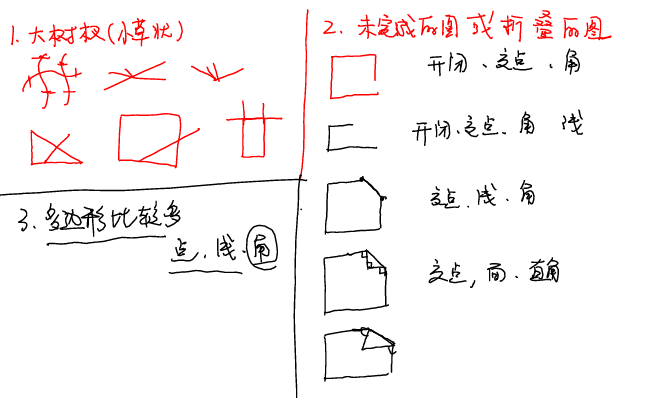 1. 大树杈(小草状)
2. 未完成的图或折叠的图
开闭、交点、角
开闭、交点、角 线
交点、线、角
交点,面、直角
3. 多边形比较多
点、线、角